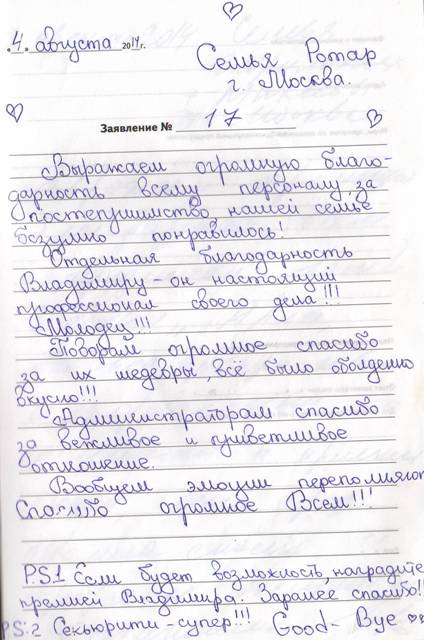 4. августа 2014г.
Семья Ротар
г. Москва.
Заявление № 17
Выражаем огромную благо-
дарность всему персоналу, за
гостеприимство нашей семье
безумно понравилось!
Отдельная благодарность
Владимиру - он настоящий
профессионал своего дела!!!
Молодец!!!
Поворам огромное спасибо
за их шедевры, всё было обалденно
вкусно!!!
Администраторам спасибо
за вежливое и приветливое
отношение.
Вообщем эмоции переполняют
Спасибо огромное Всем!!!
P.S.1 Если будет возможность, наградите
премией Владимира. Заранее спасибо!!
P.S:2 Секьюрити - супер!!! Good-Bye